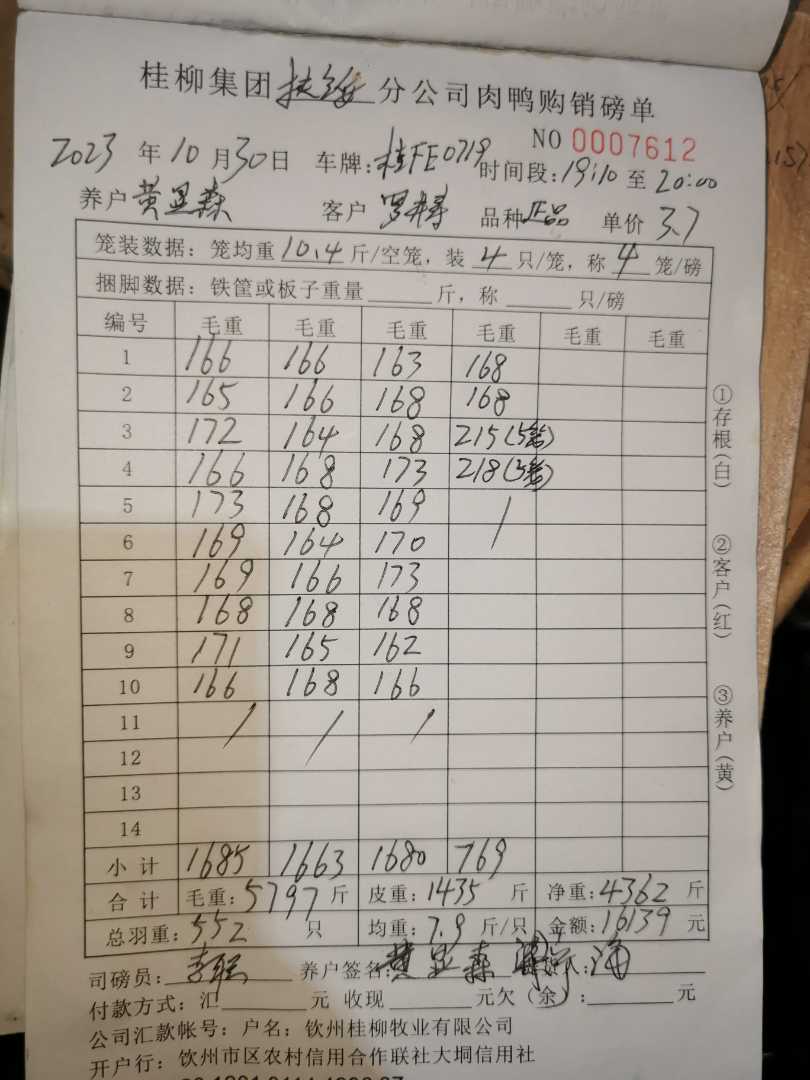 桂柳集团扶绥分公司肉鸭购销磅单
NO 0007612
2023年10月30日 车牌:桂FE0719 时间段:19:10至20:00
养户黄显森 客户 罗 品种正品 单价 3.7
笼装数据:笼均重10.4斤/空笼,装4只/笼,称4笼/磅
捆脚数据:铁筐或板子重量____斤,称____只/磅
编号 毛重 毛重 毛重 毛重 毛重 毛重
1 166 166 163 168
2 165 166 168 168
3 172 164 168 215(5笼)
4 166 168 173 218(5笼)
5 173 168 169 /
6 169 164 170
7 169 166 173
8 168 168 168
9 171 165 162
10 166 168 166
11 / / /
12
13
14
小计 1685 1663 1680 769
合计 毛重:5797斤 皮重:1435斤 净重:4362斤
总羽重:552只 均重:7.9斤/只 金额:16139元
司磅员: 养户签名:黄显森
付款方式:汇____元 收现____元欠(余):____元
公司汇款帐号:户名:钦州桂柳牧业有限公司
开户行:钦州市区农村信用合作联社大垌信用社
①存根(白)
②客户(红)
③养户(黄)